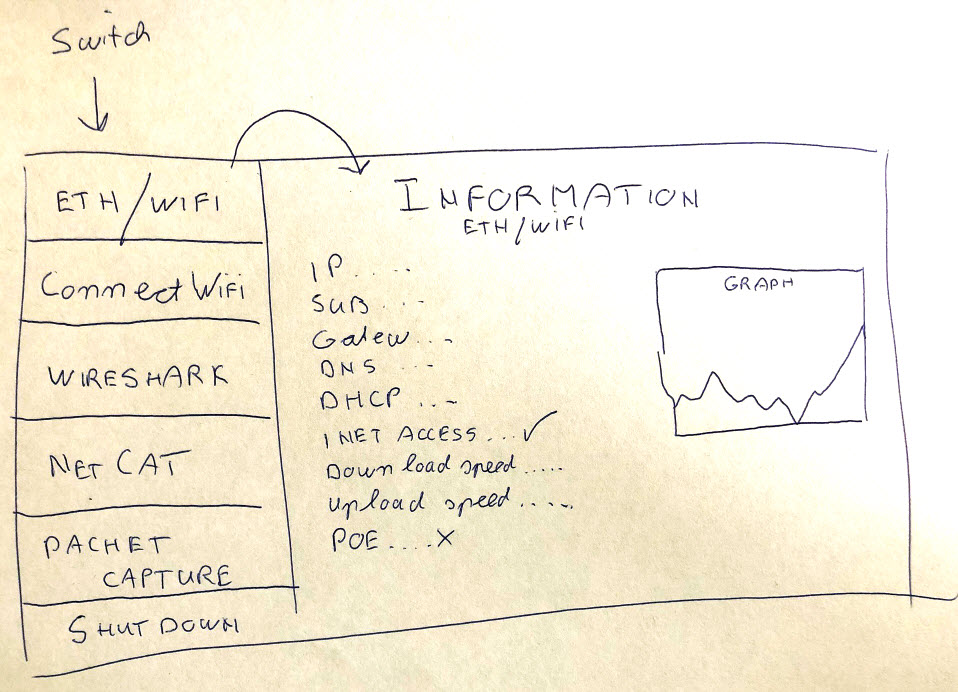 Switch
ETH/WIFI
Connect Wifi
WIRESHARK
NET CAT
PACHET
CAPTURE
SHUT DOWN
INFORMATION
ETH/WIFI
IP.....
SUB...-
Gatew..-
DNS ...
DHCP ..-
INET ACCESS...✓
Down load speed.....
Upload speed.....
POE....X
GRAPH